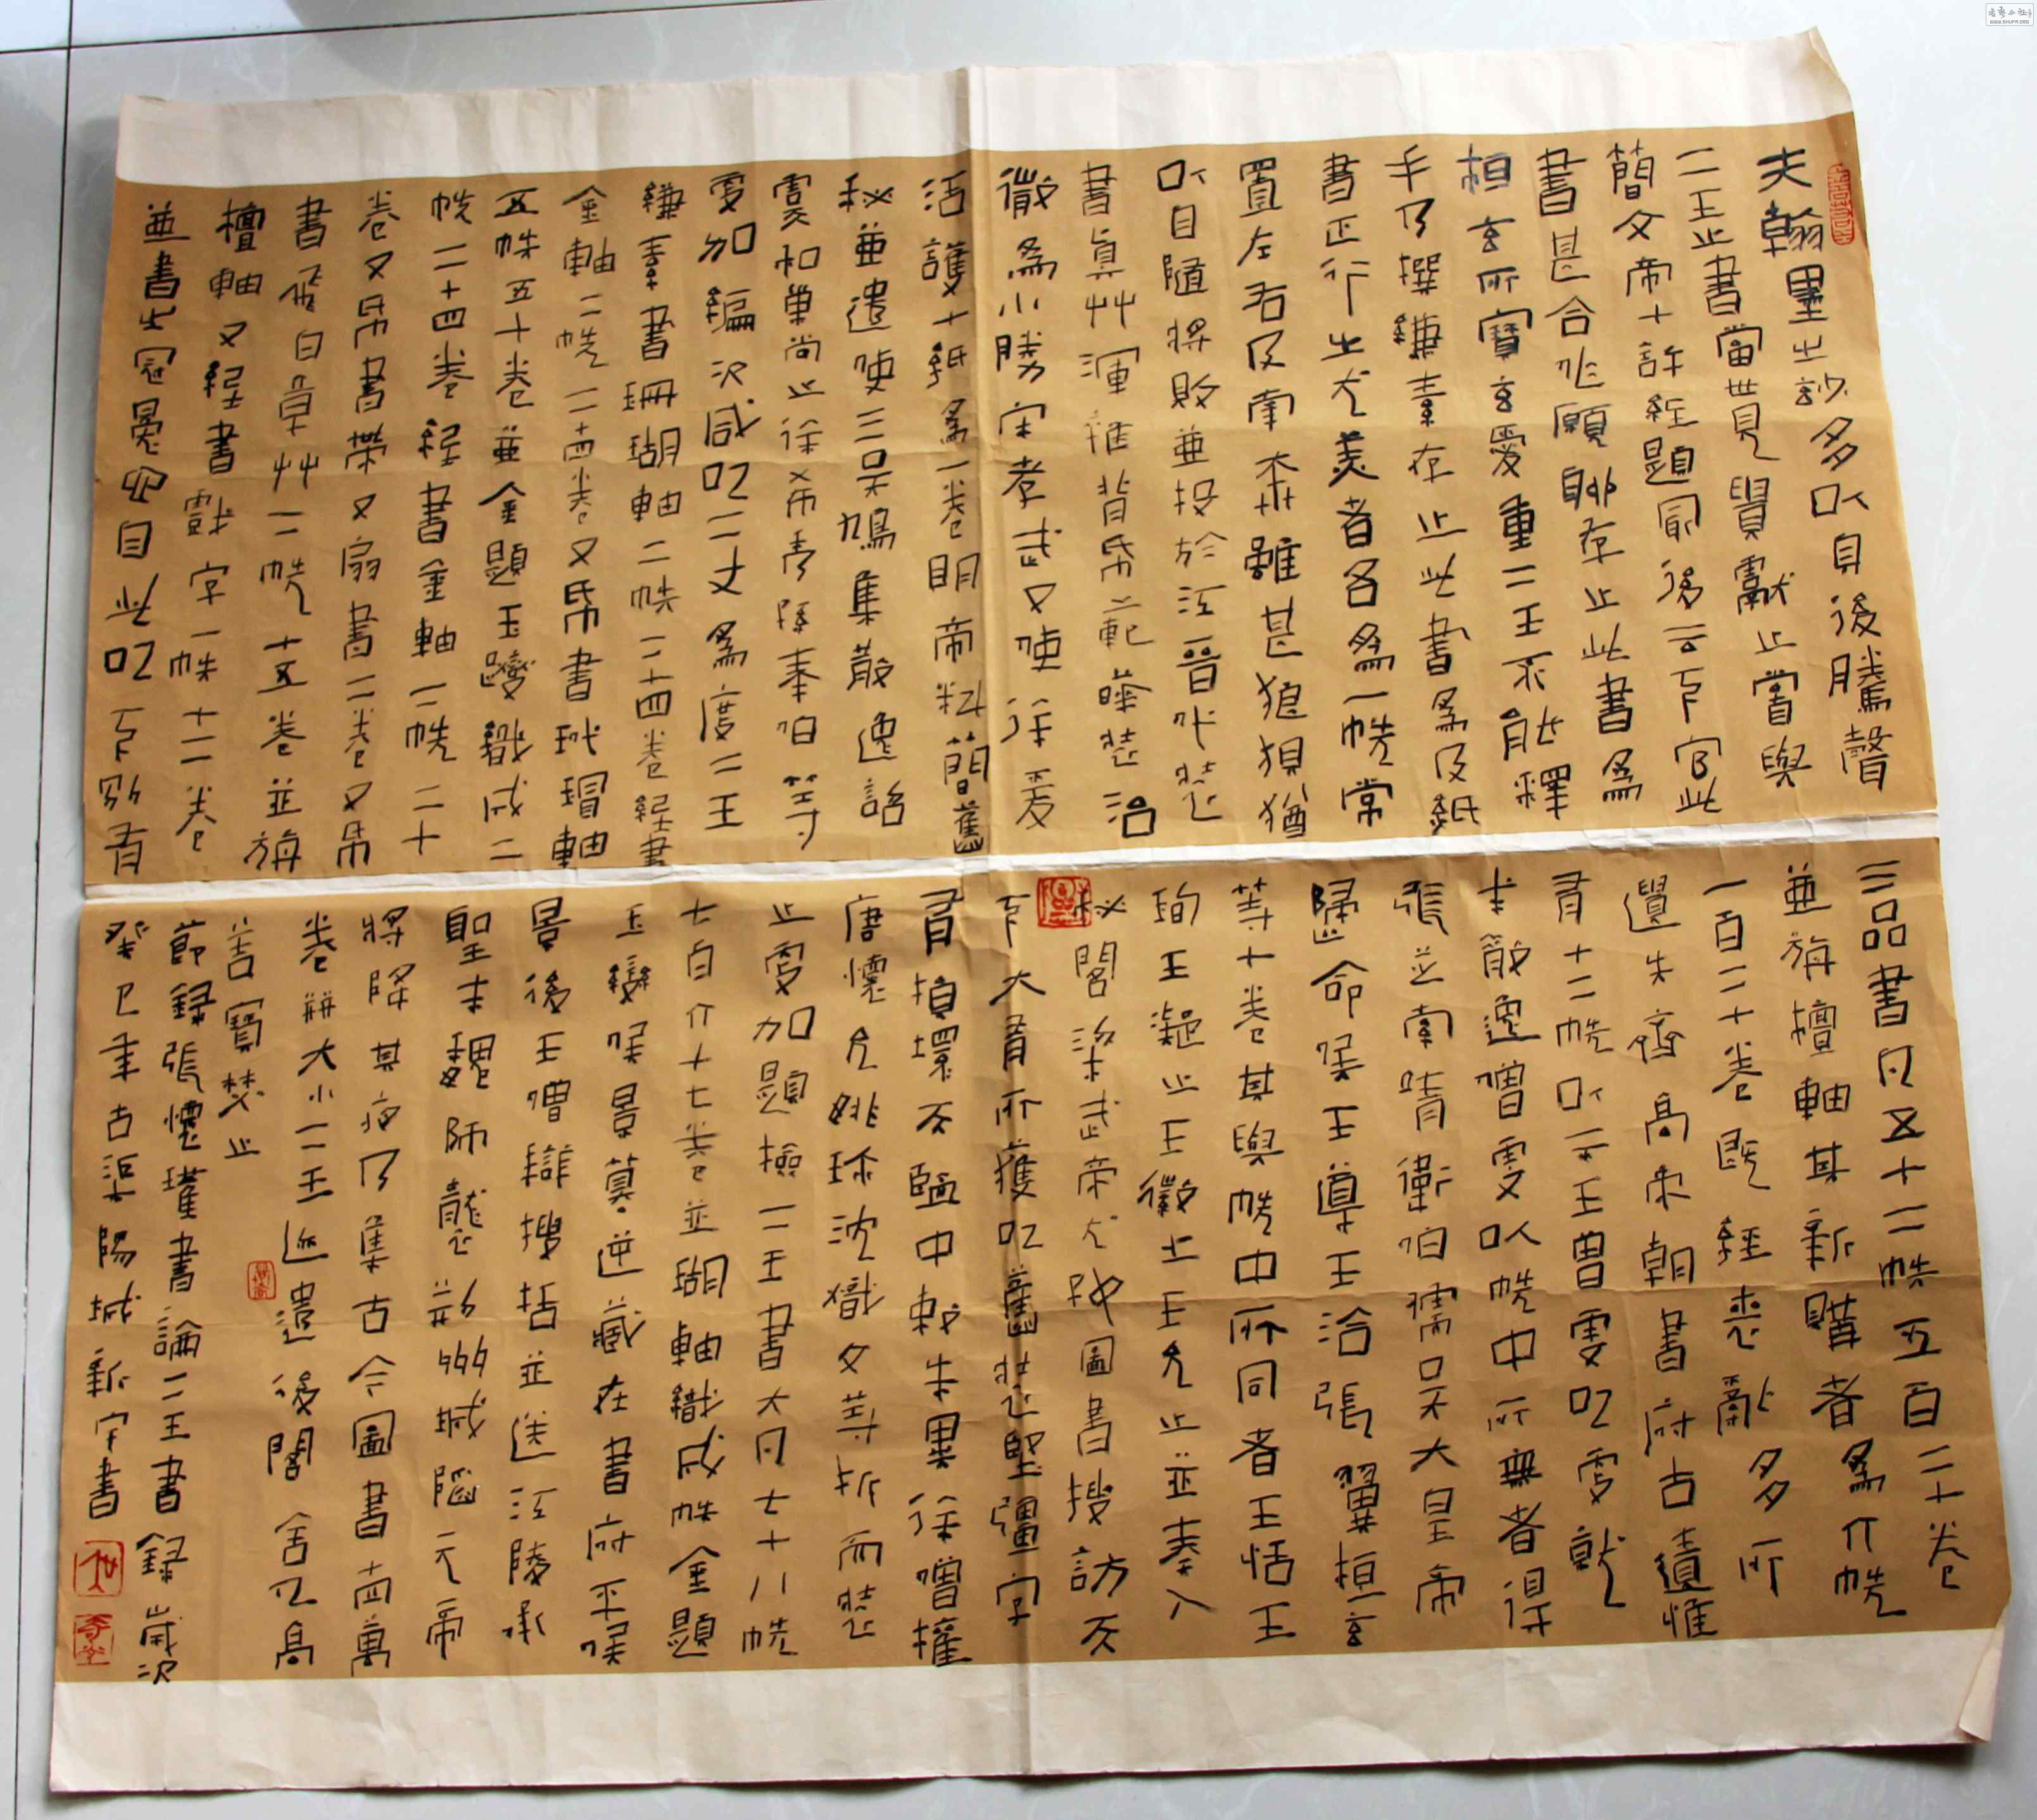 夫翰墨之妙多以身後騰聲
二王之書當世見貴獻之嘗與
簡文帝十許紙題最後云下官此
書甚合作願聊存之此書為
桓玄所寶玄愛重二王不能釋
手乃撰縑素存之此書為及紙
書正行之尤美者各為一帙常
置左右及南奔雖甚狼狽猶
以自隨將敗並投於江晉代裝
書真艸渾雜背帋範曄裝治
微為小勝宋孝武又使徐爰
治護十紙為一卷明帝科簡舊
秘並遣使三吳鳩集散逸詔
虞和巢尚之徐希秀孫奉伯等
更加編次咸以二丈為度二王
縑素書珊瑚軸二帙二十四卷紙書
金軸二帙二十四卷又帋書玳瑁軸
五帙五十卷並金題玉躞織成二
帙二十四卷紙書金軸二帙二十
卷又帋書又扇書二卷又帋
書飛白章艸二帙十五卷並旃
檀軸又紙書戲字一帙十二卷
並書之冠冕也自此以下別有
三品書凡五十二帙五百二十卷
並旃檀軸其新購者為六帙
一百二十卷既經喪亂多所
遺失齊高帝朝書府古蹟惟
有十二帙以示王曹虔以虔就
求能逸僧虔以帙中所無者得
張芝索靖衛伯儒吳大皇帝
歸命侯王導王洽張翼桓玄
等十卷其與帙中所同者王恬王
珣王凝之王徽之王允之並奏入
秘閣梁武帝尤好圖書搜訪天
下大有所獲以舊裝堅強字
有損壞天監中敕朱異徐僧權
唐懷允姚珍沈熾文等析而裝
之更加題檢二王書大凡七十八帙
七百六十七卷並瑚軸織成帙金題
玉躞侯景篡逆藏在書府平侯
景後王僧辯搜括並送江陵承
聖末魏師襲荊州城陷元帝
將降其夜乃集古今圖書十四萬
卷并大小二王跡遣後閣舍人高
善寶焚之
節錄張懷瓘書論二王書錄歲次
癸巳年古渠陽城新宇書